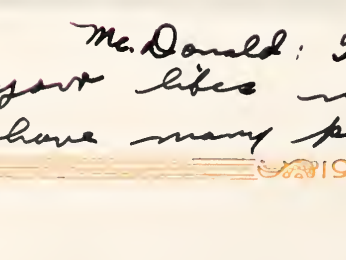 Mc. Donald:
your likes
have many
19